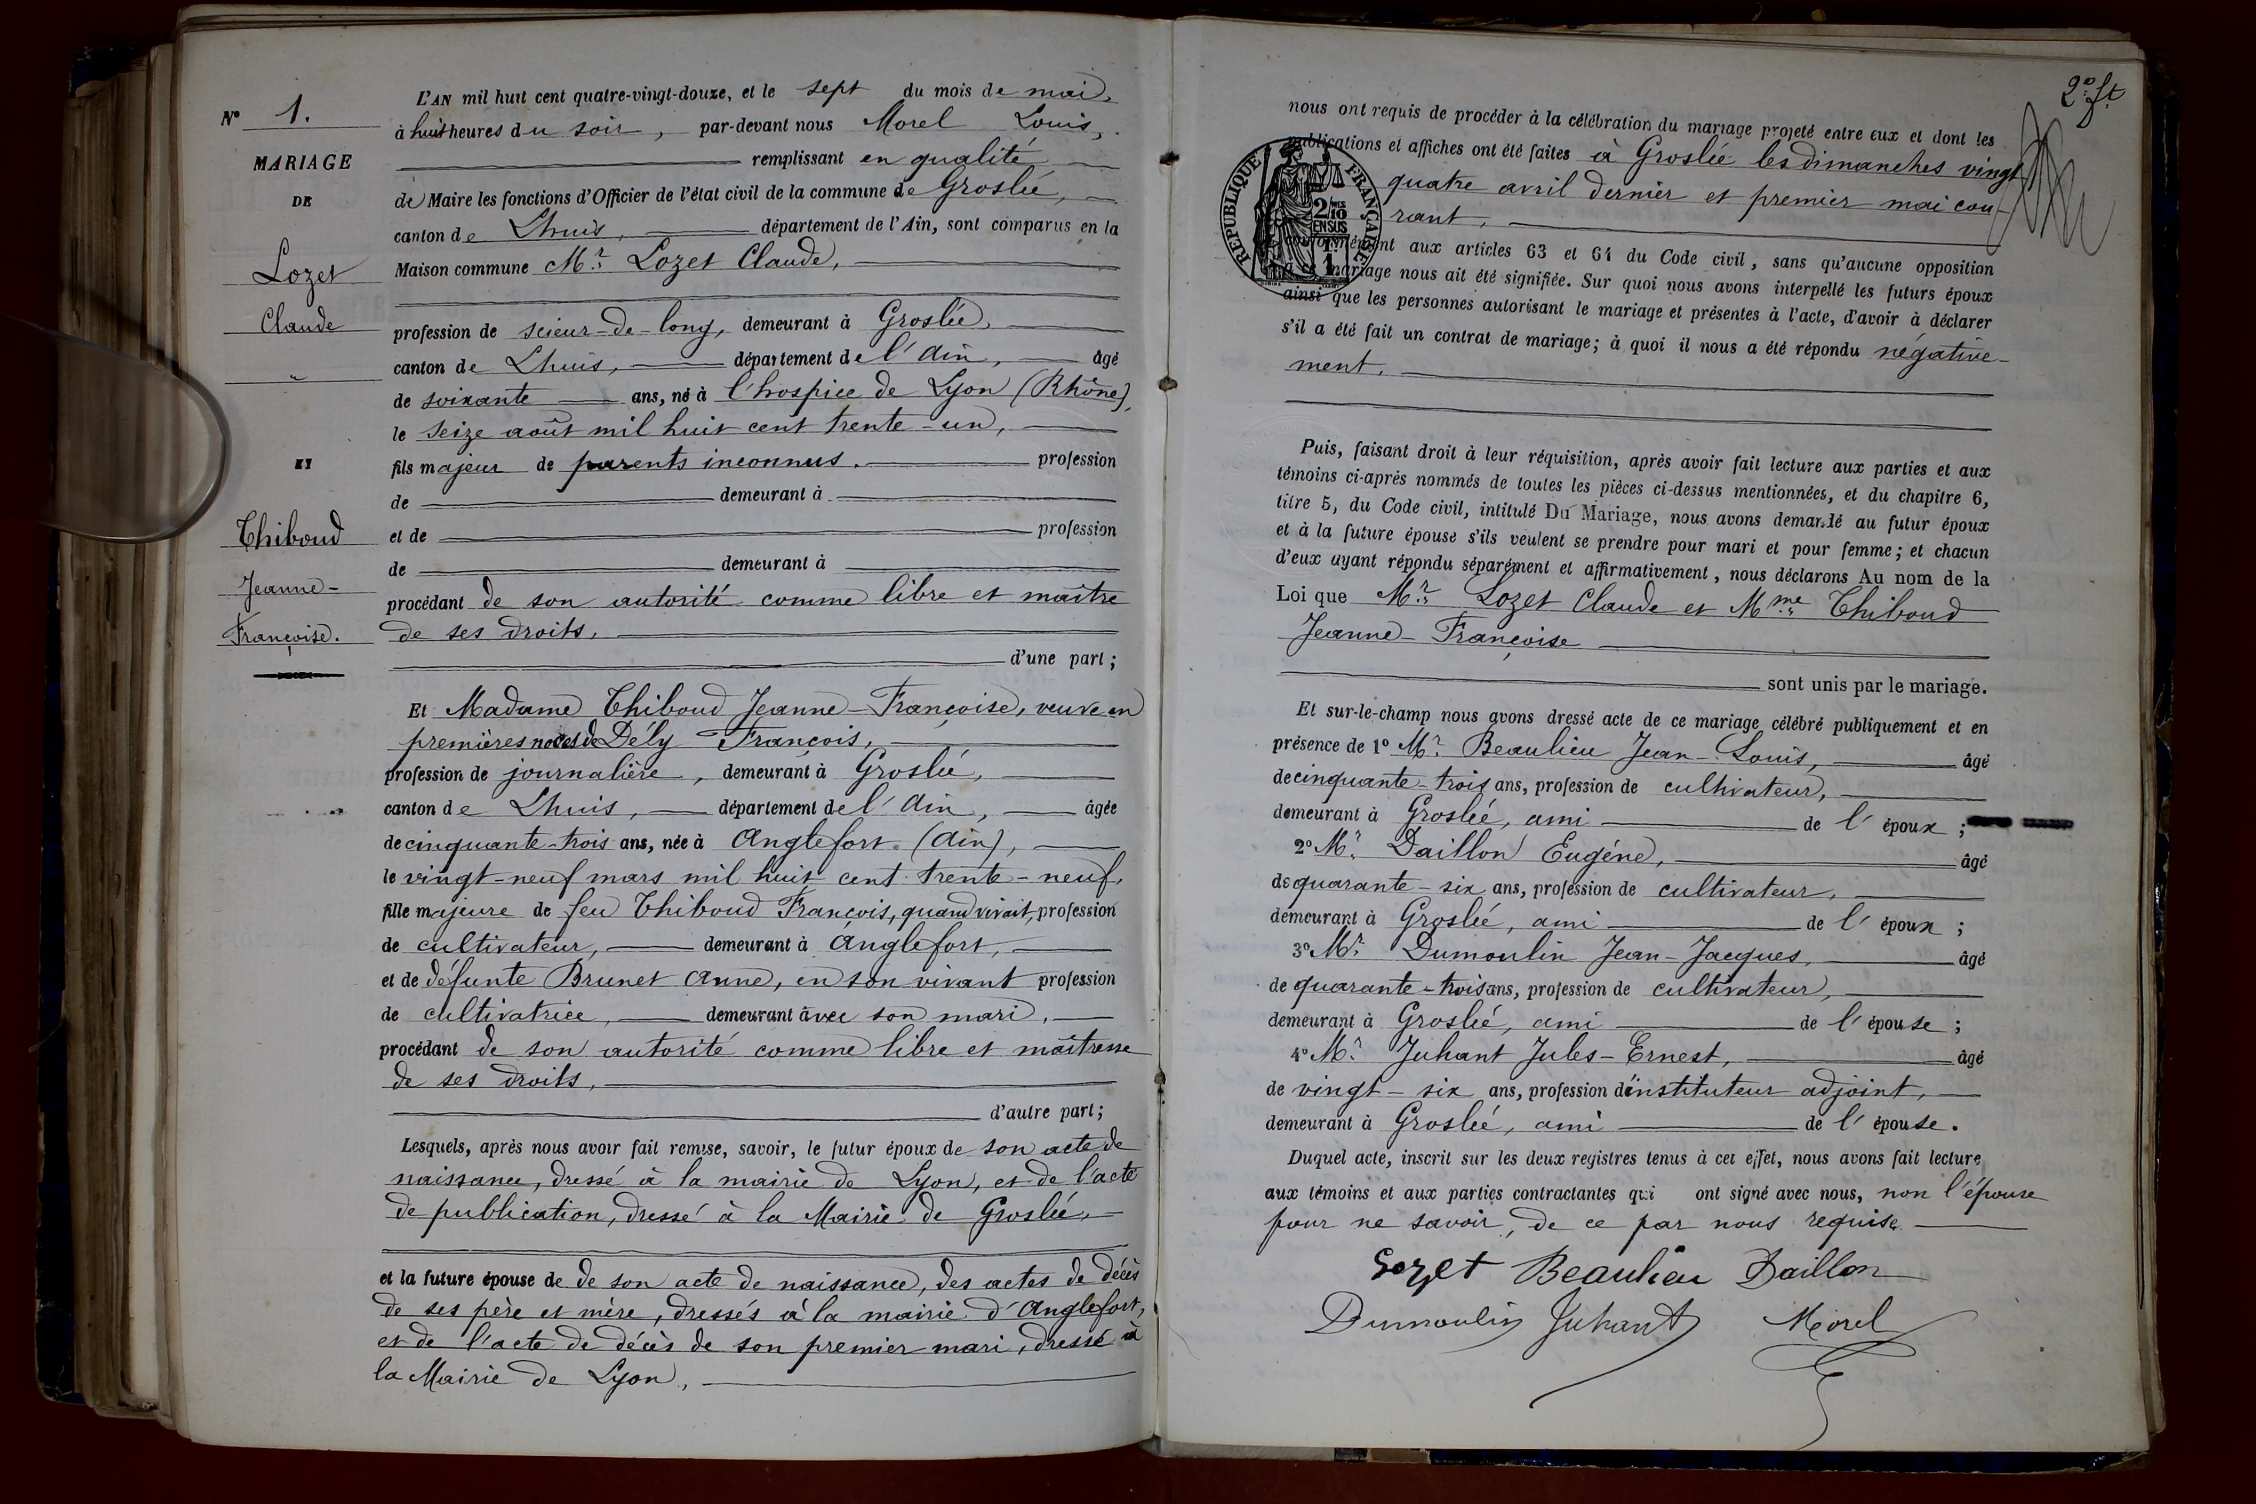 N° 1.
MARIAGE
DE
Lozet
Claude
ET
Thiboud
Jeanne-
Françoise.
L'AN mil huit cent quatre-vingt-douze, et le sept du mois de mai,
à huit heures du soir, par-devant nous Morel Louis,
remplissant en qualité
de Maire les fonctions d'Officier de l'état civil de la commune de Groslée,
canton de Lhuis, département de l'Ain, sont comparus en la
Maison commune Mr. Lozet Claude,
profession de scieur-de-long, demeurant à Groslée,
canton de Lhuis, département de l'Ain, âgé
de soixante ans, né à l'hospice de Lyon (Rhône),
le seize août mil huit cent trente-un,
fils majeur de parents inconnus. profession
de demeurant à
et de profession
de demeurant à
procédant de son autorité comme libre et maître
de ses droits,
d'une part;
Et Madame Thiboud Jeanne-Françoise, veuve en
premières noces de Dély François,
profession de journalière, demeurant à Groslée,
canton de Lhuis, département de l'Ain, âgée
de cinquante-trois ans, née à Anglefort (Ain),
le vingt-neuf mars mil huit cent trente-neuf,
fille majeure de feu Thiboud François, quand vivait, profession
de cultivateur, demeurant à Anglefort,
et de défunte Brunet Anne, en son vivant profession
de cultivatrice, demeurant avec son mari,
procédant de son autorité comme libre et maîtresse
de ses droits,
d'autre part;
Lesquels, après nous avoir fait remise, savoir, le futur époux de son acte de
naissance, dressé à la mairie de Lyon, et de l'acte
de publication, dressé à la Mairie de Groslée,
et la future épouse de de son acte de naissance, des actes de décès
de ses père et mère, dressés à la mairie d'Anglefort,
et de l'acte de décès de son premier mari, dressé à
la Mairie de Lyon,
2e ft.
nous ont requis de procéder à la célébration du mariage projeté entre eux et dont les
publications et affiches ont été faites à Groslée les dimanches vingt
quatre avril dernier et premier mai cou-
rant,
conformément aux articles 63 et 64 du Code civil, sans qu'aucune opposition
à ce mariage nous ait été signifiée. Sur quoi nous avons interpellé les futurs époux
ainsi que les personnes autorisant le mariage et présentes à l'acte, d'avoir à déclarer
s'il a été fait un contrat de mariage; à quoi il nous a été répondu négative-
ment.
RÉPUBLIQUE FRANÇAISE
2/10 EN SUS
1f
Puis, faisant droit à leur réquisition, après avoir fait lecture aux parties et aux
témoins ci-après nommés de toutes les pièces ci-dessus mentionnées, et du chapitre 6,
titre 5, du Code civil, intitulé Du Mariage, nous avons demandé au futur époux
et à la future épouse s'ils veulent se prendre pour mari et pour femme; et chacun
d'eux ayant répondu séparément et affirmativement, nous déclarons Au nom de la
Loi que Mr. Lozet Claude et Mme. Thiboud
Jeanne-Françoise
sont unis par le mariage.
Et sur-le-champ nous avons dressé acte de ce mariage célébré publiquement et en
présence de 1° Mr. Beaulieu Jean-Louis, âgé
de cinquante-trois ans, profession de cultivateur,
demeurant à Groslée, ami de l'époux;
2° Mr. Daillon Eugéne, âgé
de quarante-six ans, profession de cultivateur,
demeurant à Groslée, ami de l'époux;
3° Mr. Dumoulin Jean-Jacques, âgé
de quarante-trois ans, profession de cultivateur,
demeurant à Groslée, ami de l'épouse;
4° Mr. Juhant Jules-Ernest, âgé
de vingt-six ans, profession d'instituteur adjoint,
demeurant à Groslée, ami de l'épouse.
Duquel acte, inscrit sur les deux registres tenus à cet effet, nous avons fait lecture
aux témoins et aux parties contractantes qui ont signé avec nous, non l'épouse
pour ne savoir, de ce par nous requise.
Lozet Beaulieu Daillon
Dumoulin Juhant Morel